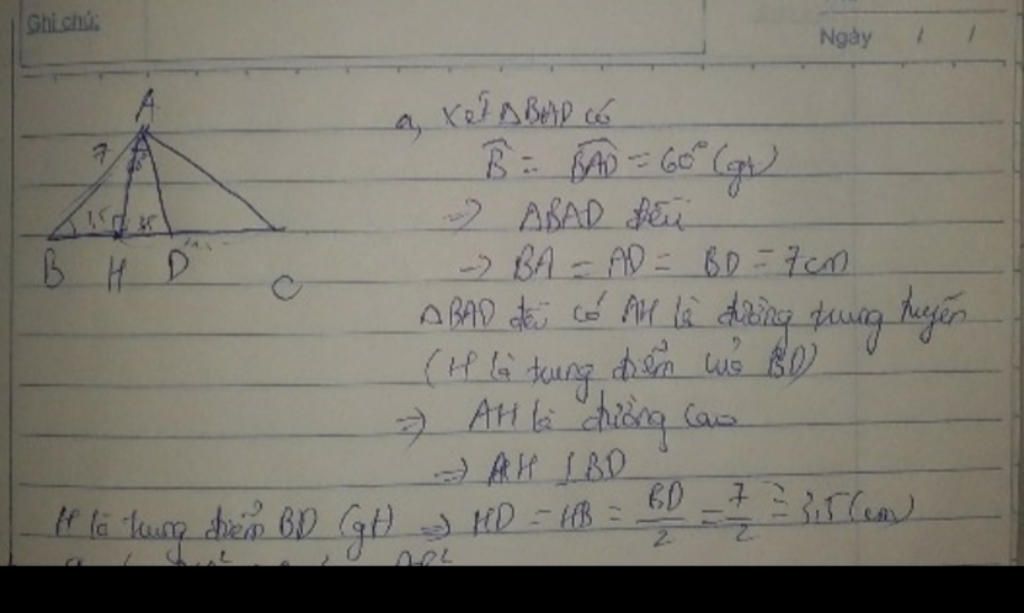 Ghi chú:
Ngày / /
A
7
60°
3,5 3,5
B H D C
a, Xét ΔBAD có
B̂ = BAD̂ = 60° (gt)
=> ΔBAD đều
=> BA = AD = BD = 7cm
ΔBAD đều có AH là đường trung tuyến
(H là trung điểm của BD)
=> AH là đường cao
=> AH ⊥ BD
H là trung điểm BD (gt) => HD = HB = BD/2 = 7/2 = 3,5 (cm)